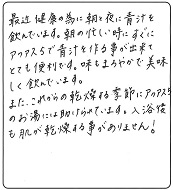 最近健康の為に朝と夜に青汁を
飲んでいます。朝の忙しい時にすぐに
アクアスSで青汁を作る事が出来て
とても便利です。味もまろやかで美味
しく飲んでいます。
また、これからの乾燥する季節にアクアスS
のお湯には助けられています。入浴後
も肌が乾燥する事がありません!